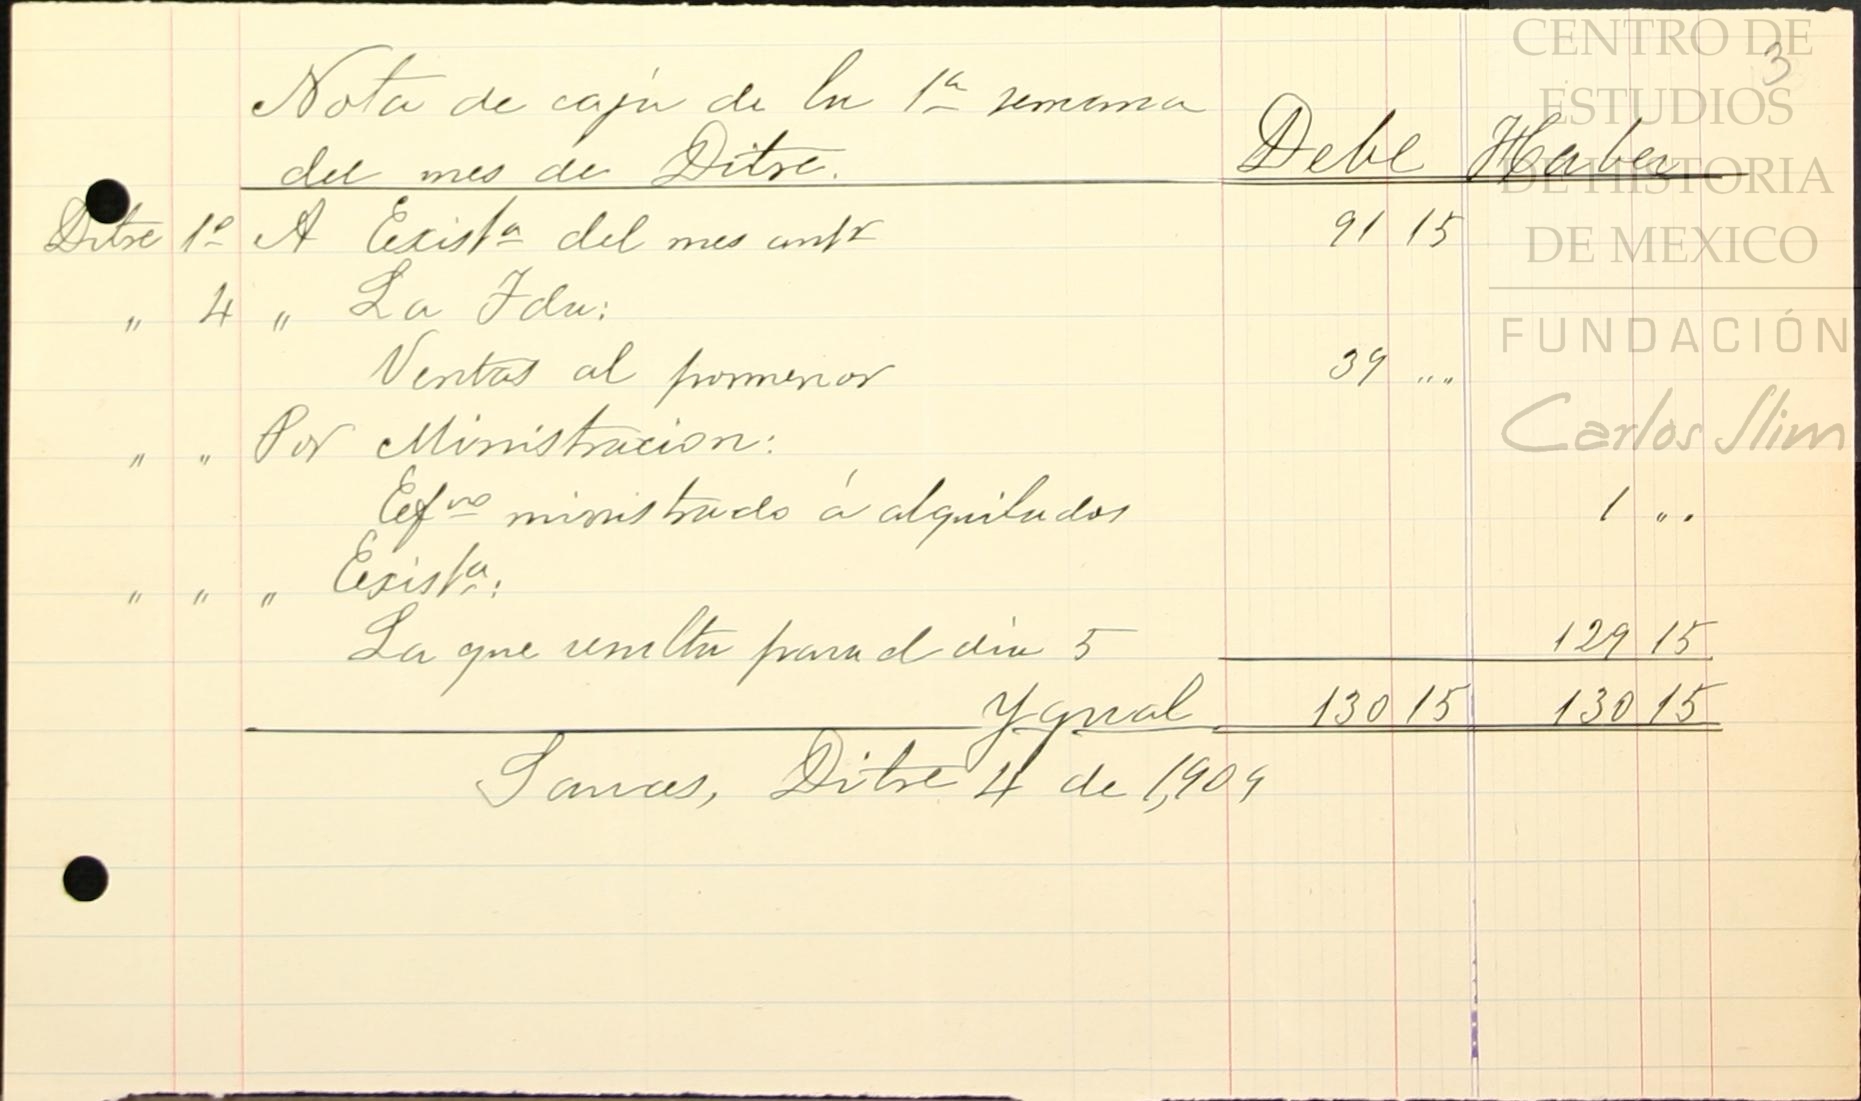 3
Nota de caja de la 1ª semana
del mes de Ditre. Debe Haber
Ditre 1º A Existª del mes antr 91 15
" 4 " La Fda:
Ventas al pormenor 39 "
" " Por Ministracion:
Efvo ministrado á alquilados 1 "
" " " Existª:
La que resulta para el dia 5 129 15
Ygual 130 15 130 15
Sauces, Ditre 4 de 1,909
CENTRO DE
ESTUDIOS
DE HISTORIA
DE MEXICO
FUNDACIÓN
Carlos Slim